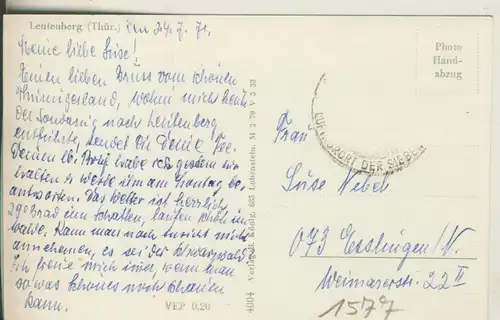 Leutenberg (Thür.) den 24.7.71.
Meine liebe Suse!
Einen lieben Gruss vom schönen
Thüringerland, wohin mich heute
der Sonntag nach Leutenberg
entführte, sendet Dir Deine
Deinen lb. Brief habe ich gestern
erhalten u. werde ihn am Sonntag be-
antworten. Das Wetter ist herrlich,
29 Grad im Schatten, laufen schön im
Walde. Kann man nach Aussicht nicht
annehmen, es sei der Schwarzwald.
Ich freue mich immer, wenn man
so was Schönes noch schauen
kann.
VEP 0,20
4004 Verlag R. König, 685 Lobenstein. M 2 79 V 5 33
Photo
Hand-
abzug
LUFTKURORT DER SIEBEN
Frau
Suse Nebel
073 Esslingen/N.
Weimarerstr. 22 II
1577